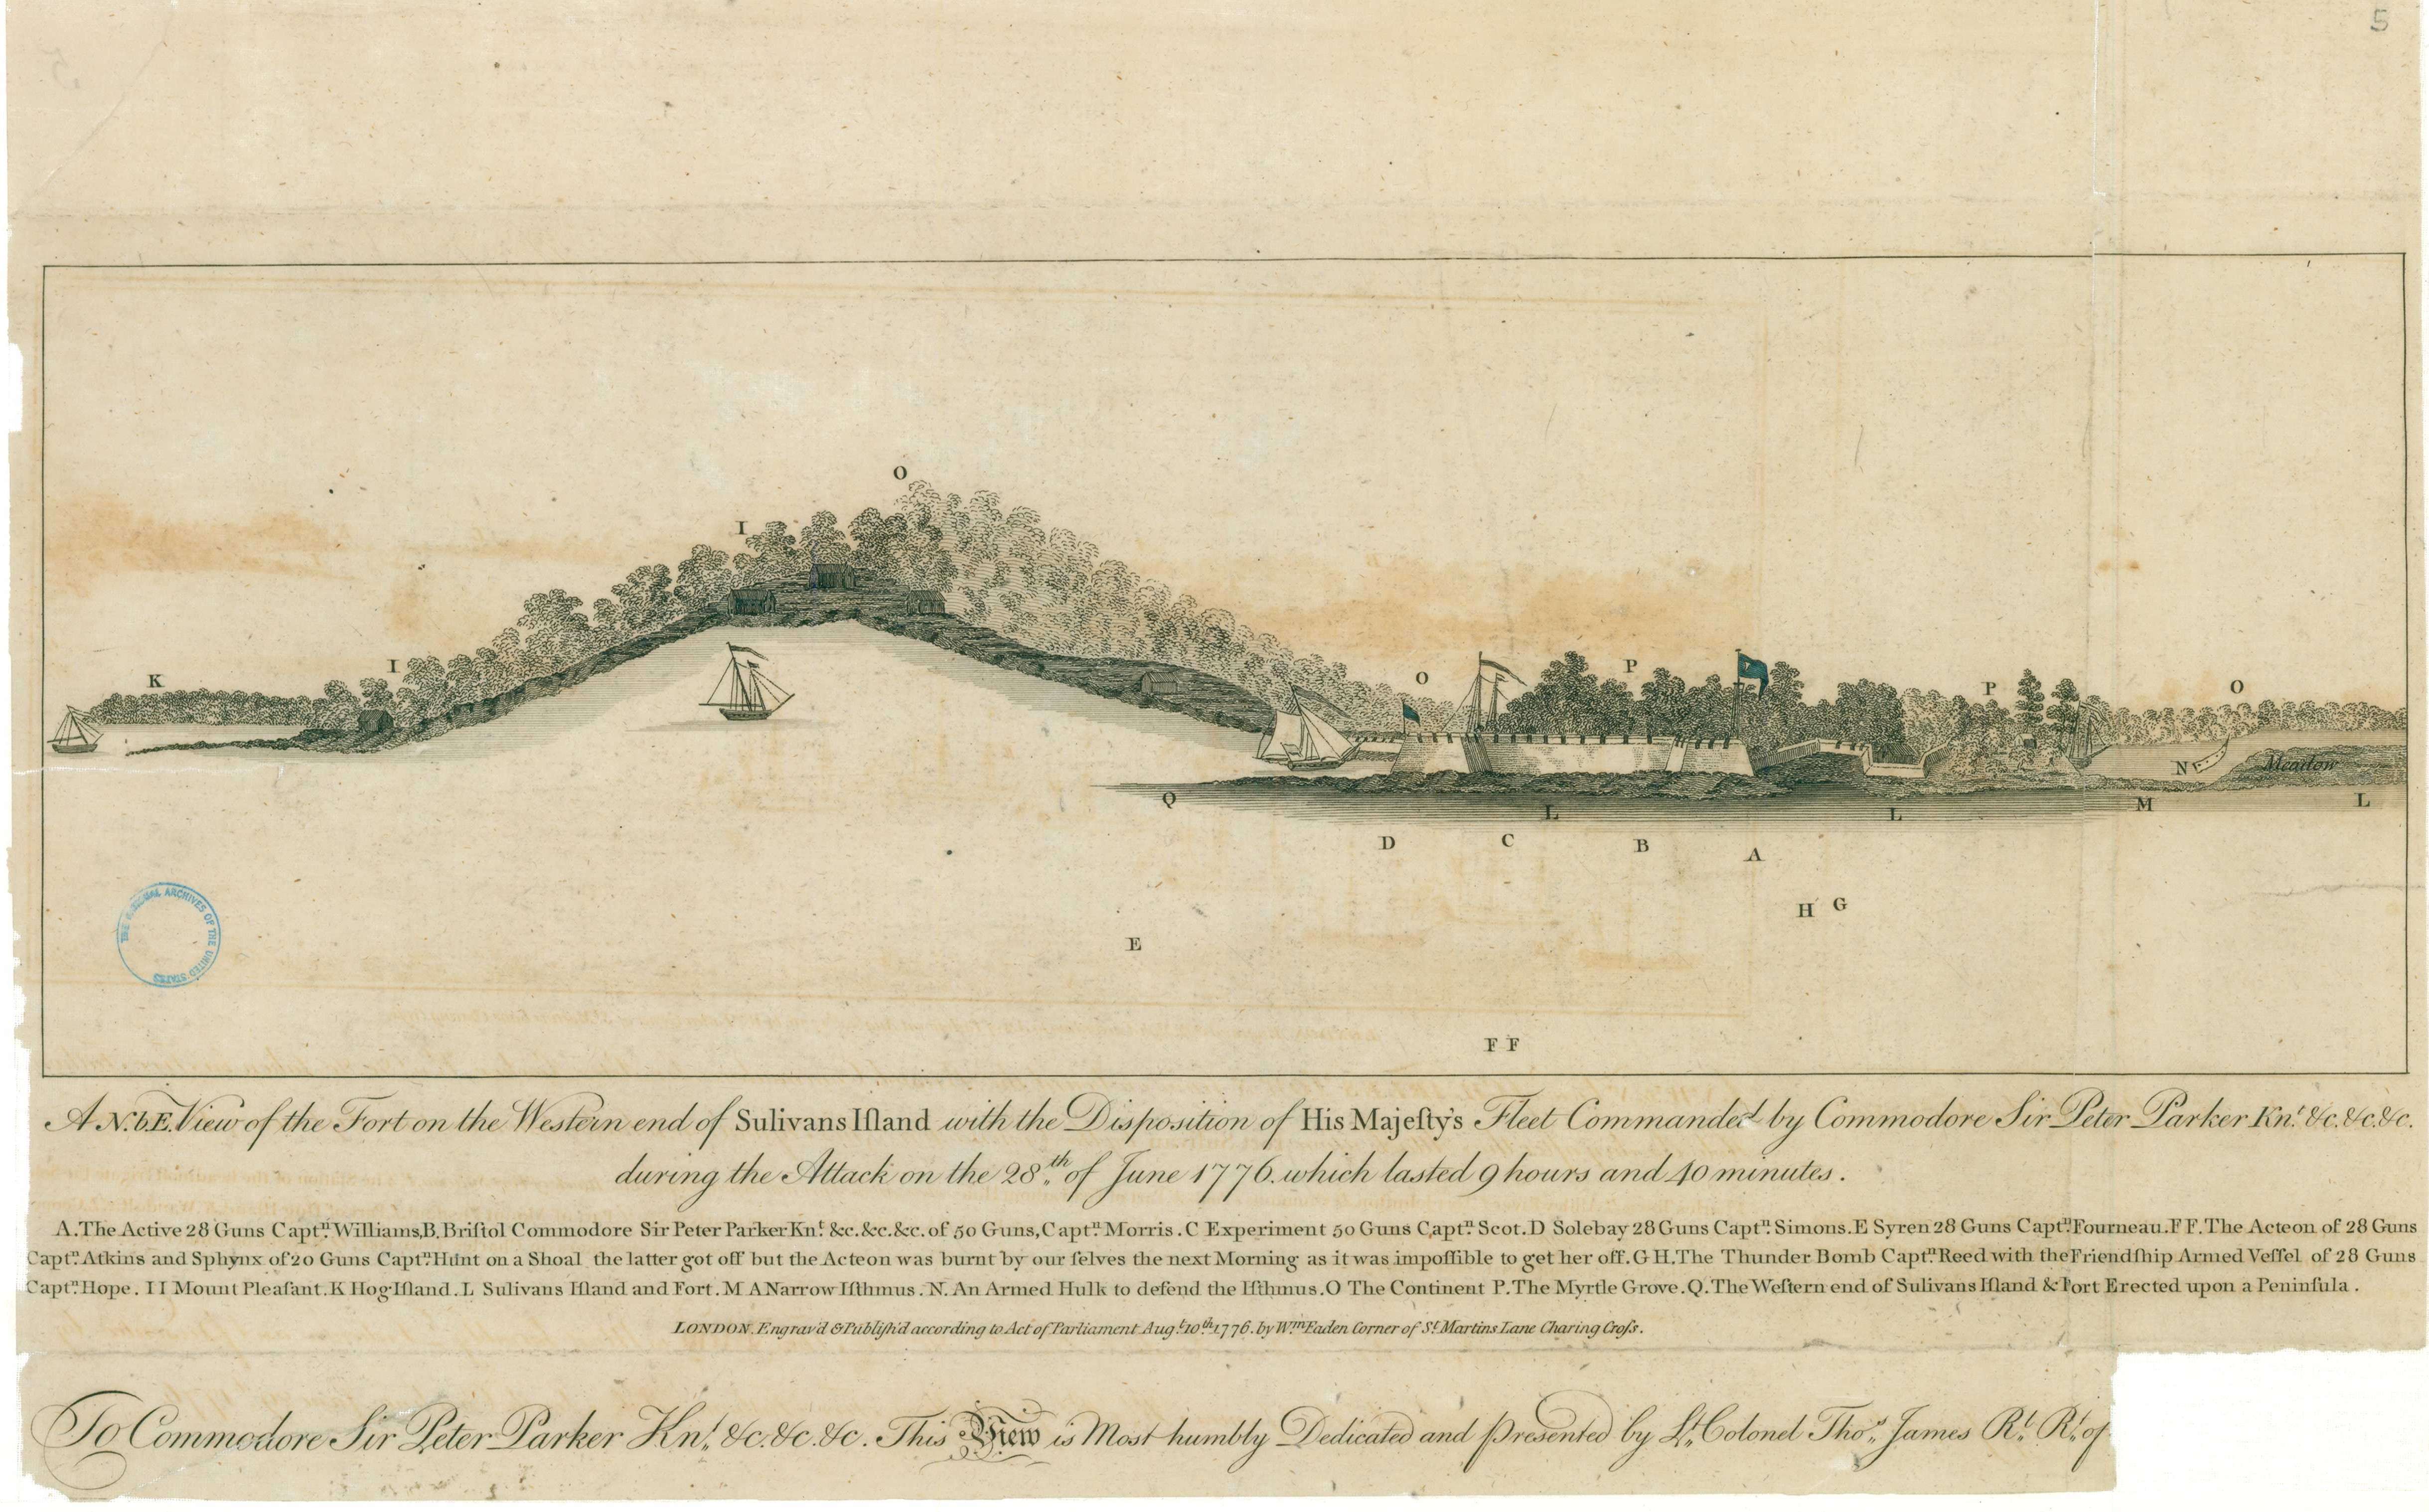 5
O
I
I
K
O
P
P
O
N
Meadow
Q
L
L
M
L
D
C
B
A
H G
E
F F
THE NATIONAL ARCHIVES OF THE UNITED STATES
A N.b.E. View of the Fort on the Western end of Sulivans Iſland with the Disposition of His Majeſty's Fleet Commanded by Commodore Sir Peter Parker Knt. &c. &c. &c.
during the Attack on the 28th. of June 1776. which lasted 9 hours and 40 minutes.
A. The Active 28 Guns Captn. Williams, B. Briſtol Commodore Sir Peter Parker Knt. &c. &c. &c. of 50 Guns, Captn. Morris. C Experiment 50 Guns Captn. Scot. D Solebay 28 Guns Captn. Simons. E Syren 28 Guns Captn. Fourneau. F F. The Acteon of 28 Guns
Captn. Atkins and Sphynx of 20 Guns Captn. Hunt on a Shoal the latter got off but the Acteon was burnt by our ſelves the next Morning as it was impoſſible to get her off. G H. The Thunder Bomb Captn. Reed with the Friendſhip Armed Veſſel of 28 Guns
Captn. Hope. I I Mount Pleaſant. K Hog Iſland. L Sulivans Iſland and Fort. M A Narrow Iſthmus. N. An Armed Hulk to defend the Iſthmus. O The Continent P. The Myrtle Grove. Q. The Weſtern end of Sulivans Iſland & Fort Erected upon a Peninſula.
LONDON. Engrav'd & Publiſh'd according to Act of Parliament Augt. 10th. 1776. by Wm. Faden Corner of St. Martins Lane Charing Croſs.
To Commodore Sir Peter Parker Knt. &c. &c. &c. This View is Most humbly Dedicated and Presented by Lt. Colonel Thos. James Rl. Rt. of